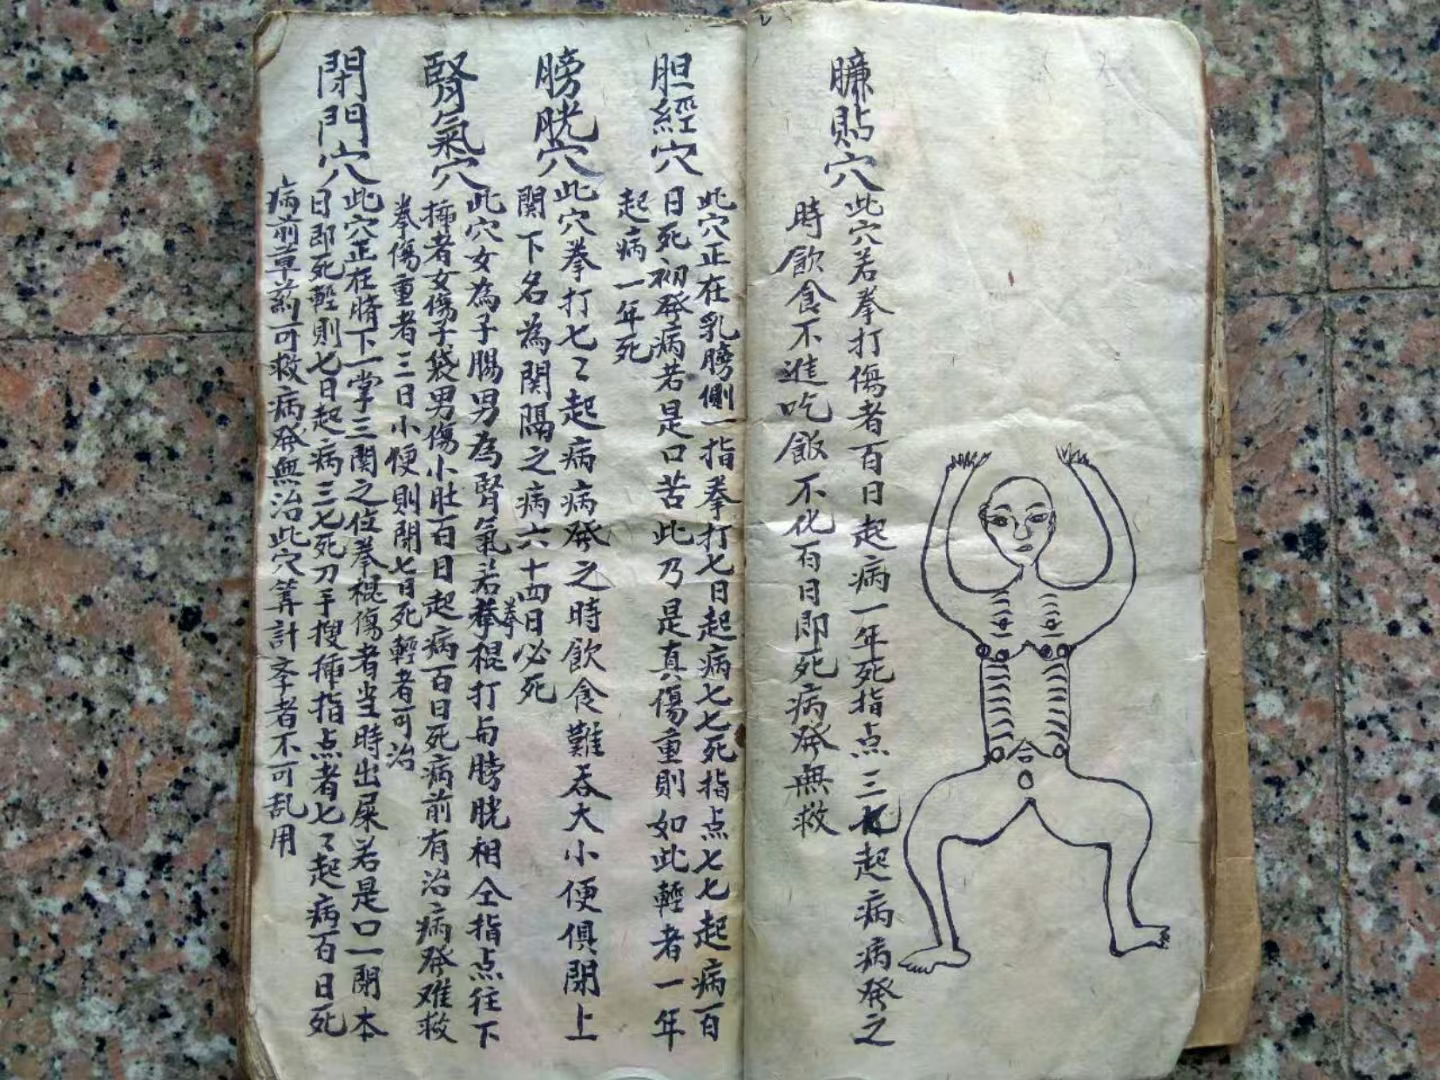 臁貼穴此穴若拳打傷者百日起病一年死指点三七起病病發之
時飲食不進吃飯不化百日即死病發無救
合
胆經穴此穴正在乳膀側一指拳打七日起病七七死指点七七起病百
日死初發病若是口苦此乃是真傷重則如此輕者一年
起病一年死
膀胱穴此穴拳打七〻起病病發之時飲食難吞大小便俱閉上
関下名為関隔之病六十四日必死
腎氣穴此穴女為子腸男為腎氣若拳棍打与膀胱相仝指点往下
插者女傷子袋男傷小肚百日起病百日死病前有治病發难救
拳傷重者三日小便則閉七日死輕者可治
閉門穴此穴正在臍下一掌三関之位拳棍傷者当時出屎若是口一閉本
日即死輕則七日起病三七死刀手搜插指点者七〻起病百日死
病前草药可救病發無治此穴筭計夲者不可乱用